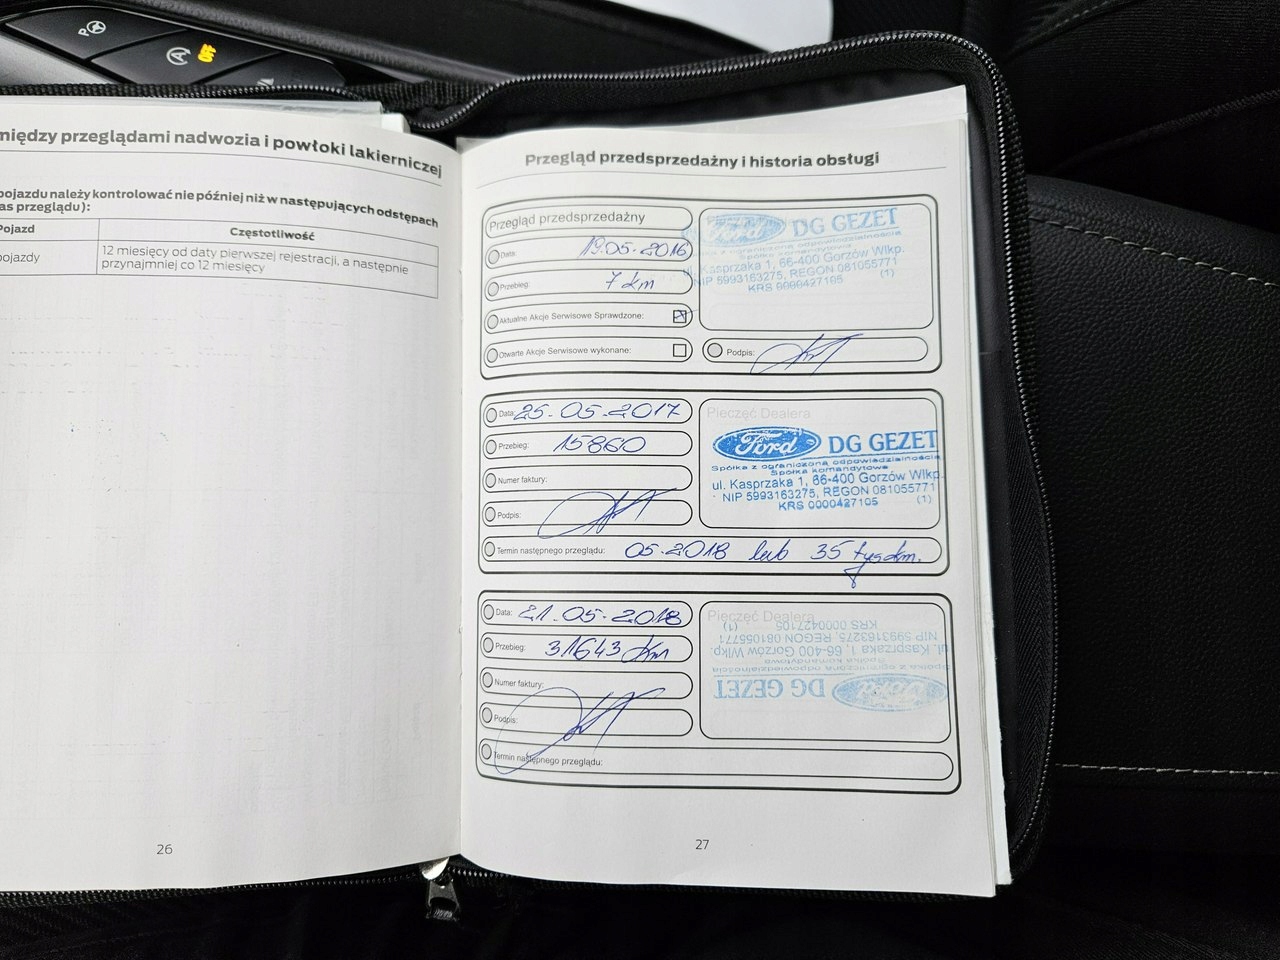 między przeglądami nadwozia i powłoki lakierniczej
pojazdu należy kontrolować nie później niż w następujących odstępach
as przeglądu):
Pojazd Częstotliwość
pojazdy 12 miesięcy od daty pierwszej rejestracji, a następnie
przynajmniej co 12 miesięcy
26
Przegląd przedsprzedażny i historia obsługi
Przegląd przedsprzedażny
Data: 19.05.2016
Przebieg: 7 km
Aktualne Akcje Serwisowe Sprawdzone:
Otwarte Akcje Serwisowe wykonane:
Ford DG GEZET
Spółka z ograniczoną odpowiedzialnością
Spółka komandytowa
ul. Kasprzaka 1, 66-400 Gorzów Wlkp.
NIP 5993163275, REGON 081055771
KRS 0000427105 (1)
Podpis:
Data: 25.05.2017
Przebieg: 15860
Numer faktury:
Podpis:
Pieczęć Dealera
Ford DG GEZET
Spółka z ograniczoną odpowiedzialnością
Spółka komandytowa
ul. Kasprzaka 1, 66-400 Gorzów Wlkp.
NIP 5993163275, REGON 081055771
KRS 0000427105 (1)
Termin następnego przeglądu: 05.2018 lub 35 tys km.
Data: 21.05.2018
Przebieg: 31643 km
Numer faktury:
Podpis:
Pieczęć Dealera
Ford DG GEZET
Spółka z ograniczoną odpowiedzialnością
Spółka komandytowa
ul. Kasprzaka 1, 66-400 Gorzów Wlkp.
NIP 5993163275, REGON 081055771
KRS 0000427105 (1)
Termin następnego przeglądu:
27
P
A OFF